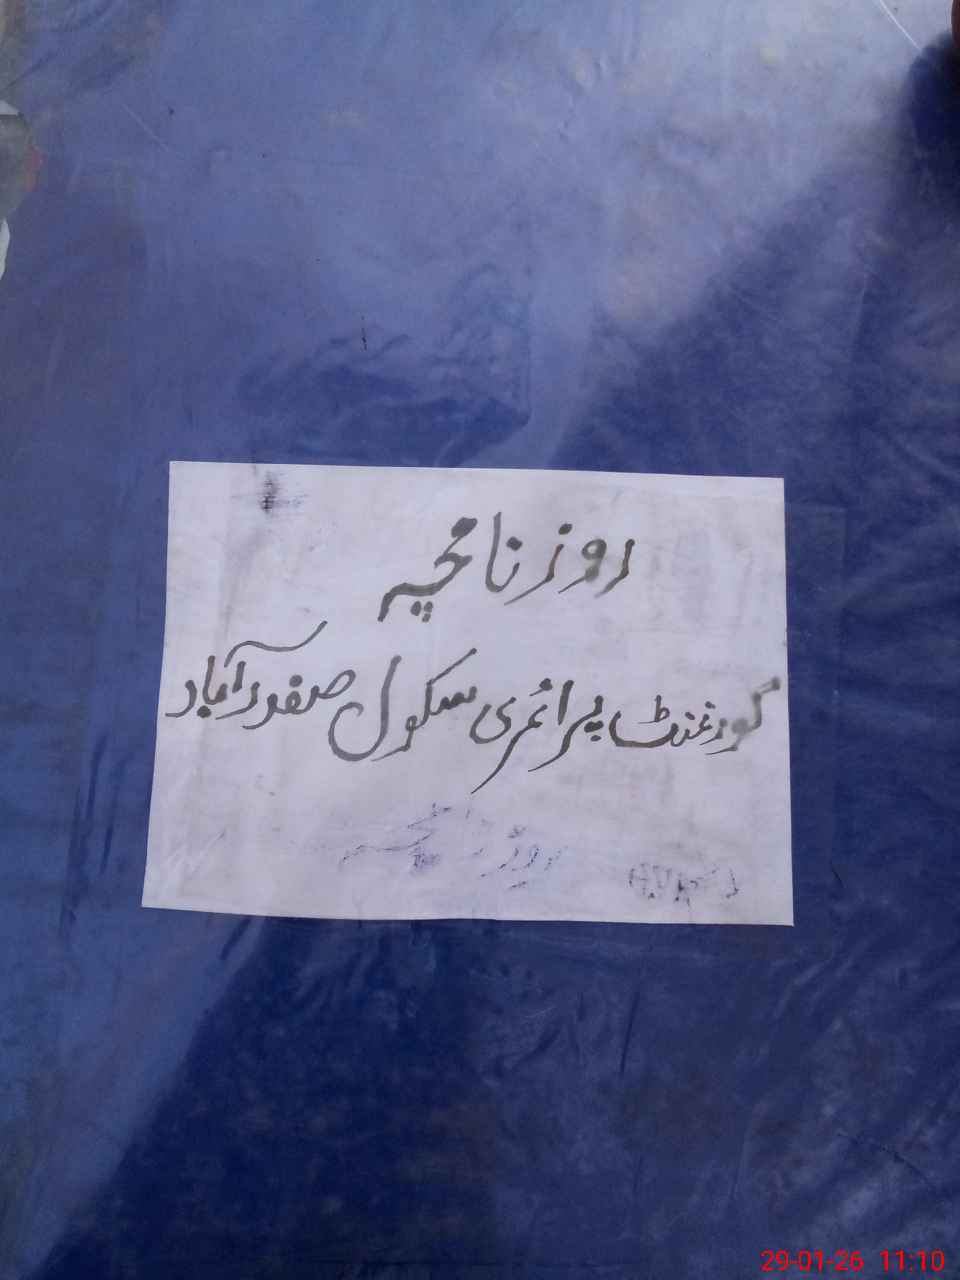 روزنامچہ
گورنمنٹ پرائمری سکول صفدرآباد
29-01-26 11:10